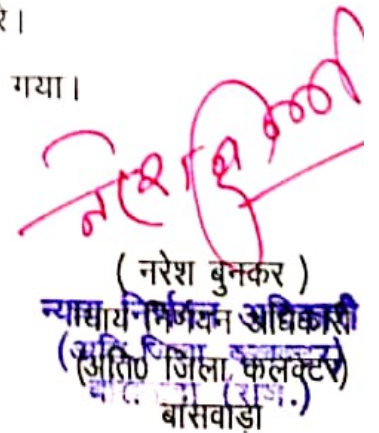 रे।
गया।
( नरेश बुनकर )
न्याय निर्णयन अधिकारी
(अति० जिला कलक्टर)
बांसवाड़ा